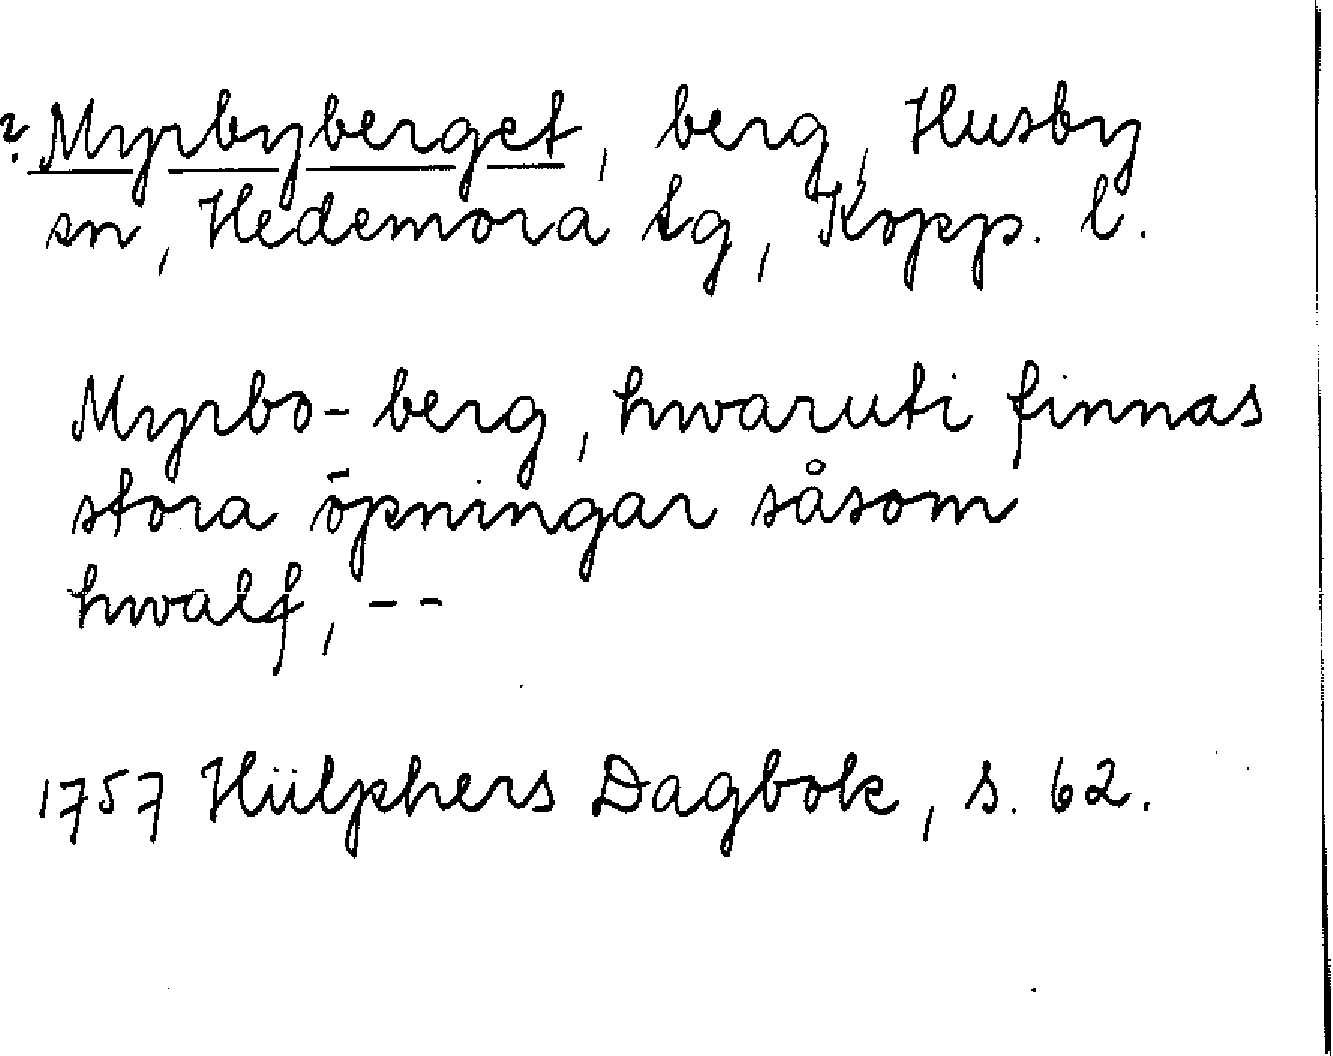 ? Myrbyberget, berg, Husby
sn, Hedemora tg, Kopp. l.
Myrbo-berg, hwaruti finnas
stora öpningar såsom
hwalf, --
1757 Hülphers Dagbok, s. 62.